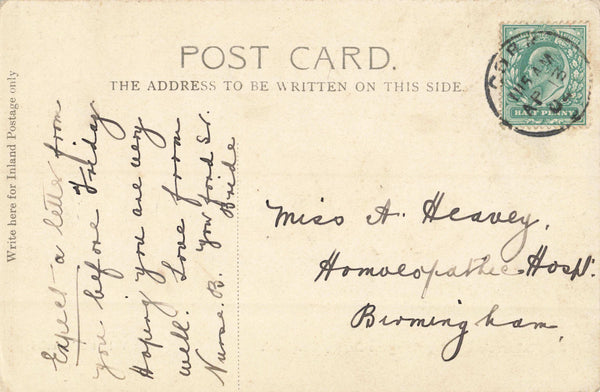 POST CARD.
THE ADDRESS TO BE WRITTEN ON THIS SIDE.
Write here for Inland Postage only
Expect a letter from
you before Friday
Hoping you are very
well. Love from
Nurse. B. Your fond Sr.
Bride
Miss A. Heavey,
Homoeopathic Hospl.
Birmingham,
CORK
AP
HALF PENNY